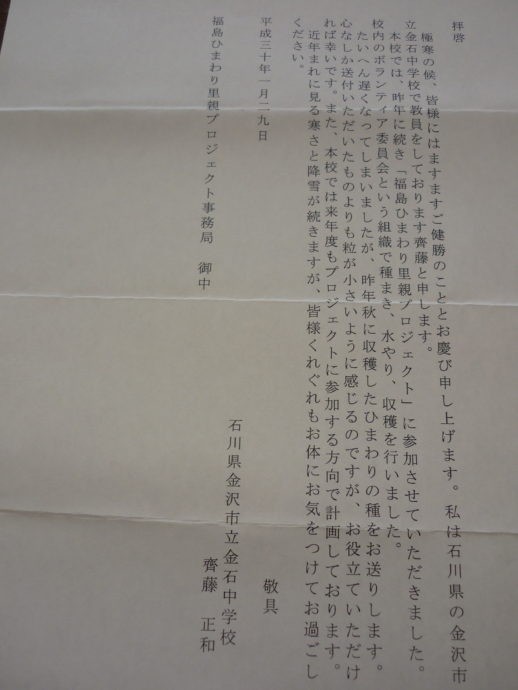 拝啓
極寒の候、皆様にはますますご健勝のこととお慶び申し上げます。私は石川県の金沢市
立金石中学校で教員をしております齊藤と申します。
本校では、昨年に続き「福島ひまわり里親プロジェクト」に参加させていただきました。
校内のボランティア委員会という組織で種まき、水やり、収穫を行いました。
たいへん遅くなってしまいましたが、昨年秋に収穫したひまわりの種をお送りします。
心なしか送付いただいたものよりも粒が小さいように感じるのですが、お役立ていただけ
れば幸いです。また、本校では来年度もプロジェクトに参加する方向で計画しております。
近年まれに見る寒さと降雪が続きますが、皆様くれぐれもお体にお気をつけてお過ごし
ください。
敬具
平成三十年一月二九日
石川県金沢市立金石中学校
齊藤 正和
福島ひまわり里親プロジェクト事務局 御中